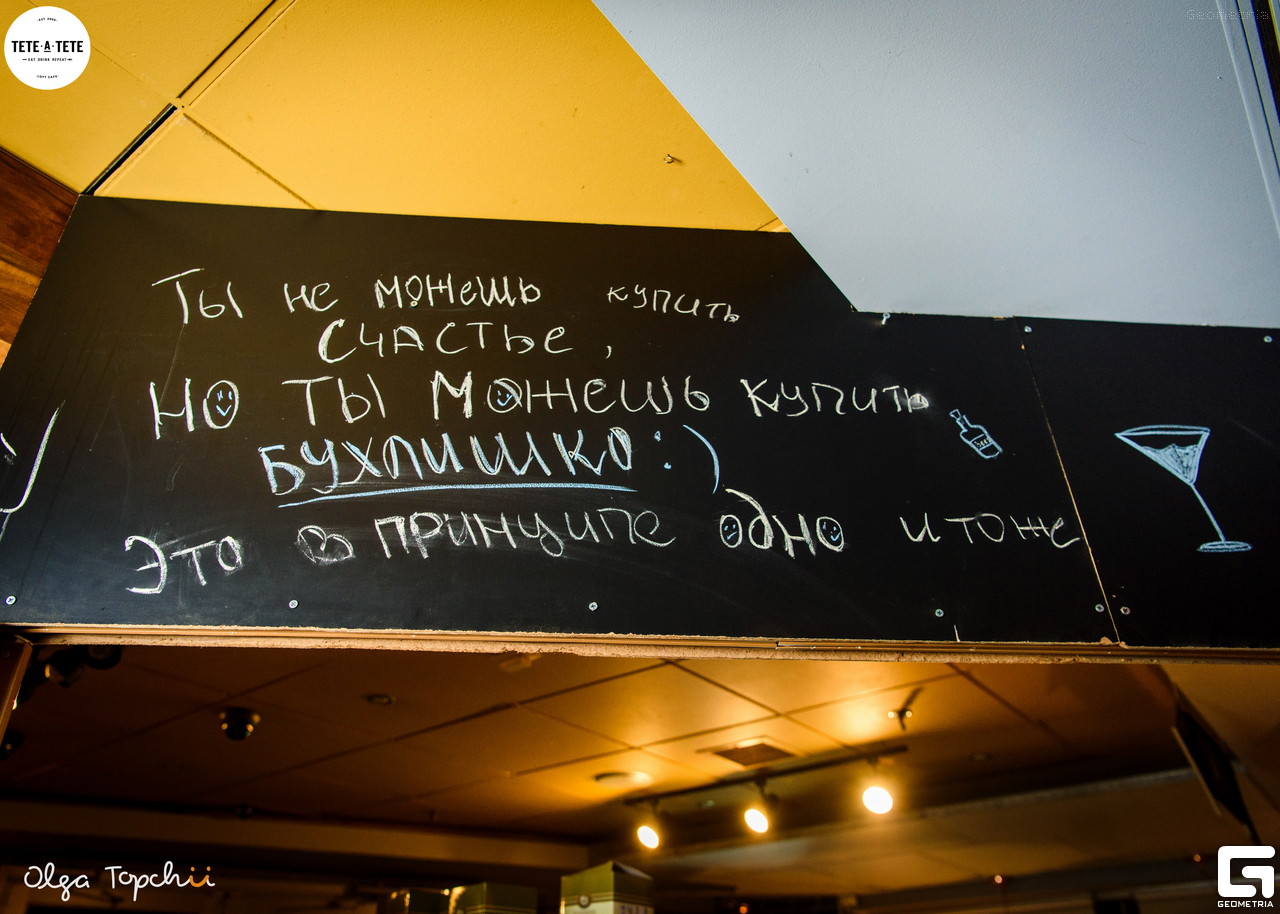 EST. 2009
TETE·A·TETE
EAT DRINK REPEAT
Geometria
Ты не можешь купить
счастье,
но ты можешь купить
БУХЛИШКО :)
Это в принципе одно и тоже
Olga Topchii
GEOMETRIA